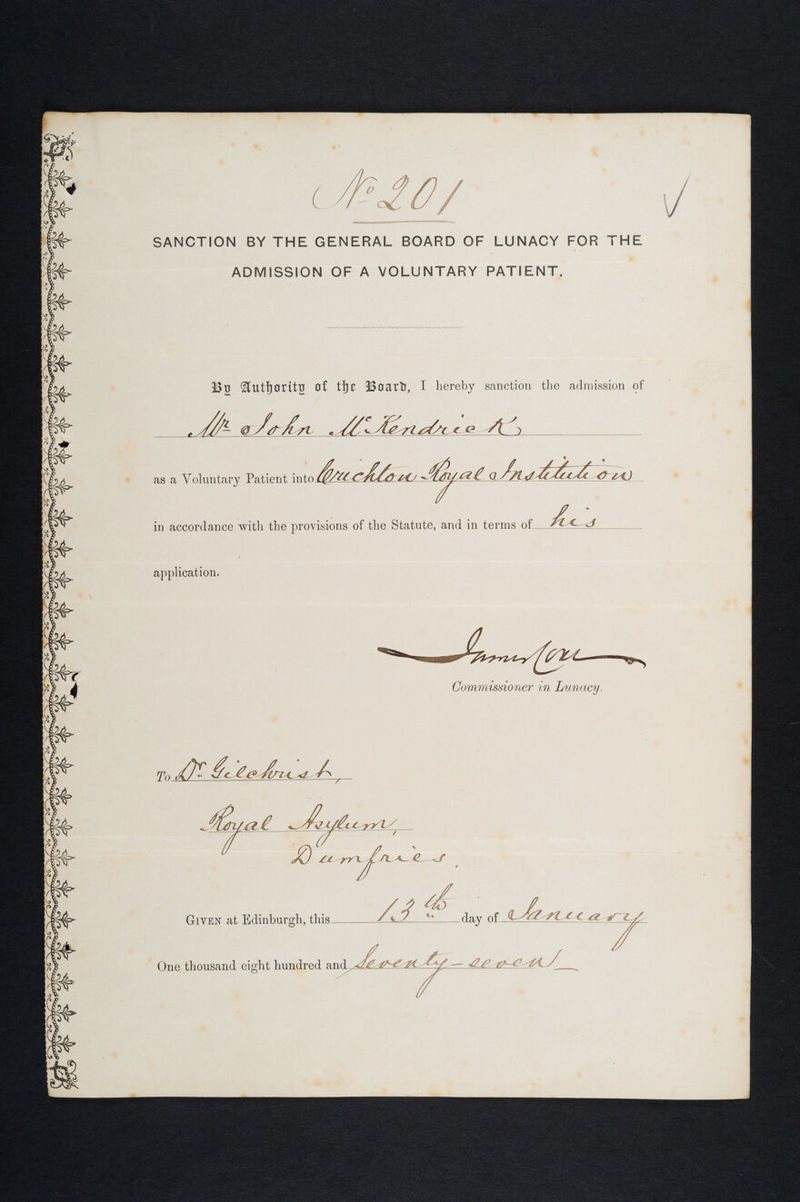 No 201
SANCTION BY THE GENERAL BOARD OF LUNACY FOR THE
ADMISSION OF A VOLUNTARY PATIENT.
By Authority of the Board, I hereby sanction the admission of
Mr John McKendrick
as a Voluntary Patient into Crichton Royal Institution
in accordance with the provisions of the Statute, and in terms of his
application.
James Coxe
Commissioner in Lunacy.
To Dr. Gilchrist,
Royal Asylum,
Dumfries.
GIVEN at Edinburgh, this 13th day of January
One thousand eight hundred and Seventy-seven